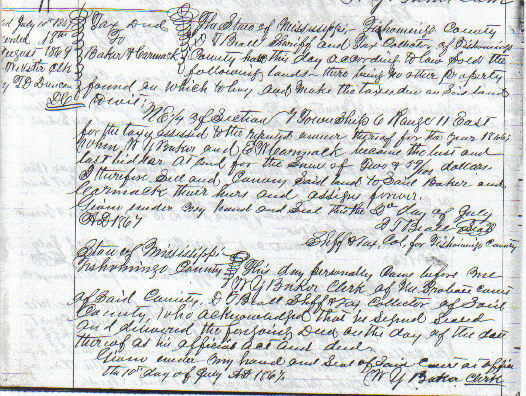 Tax Deed
To
Baker & Cormack
The State of Mississippi Tishomingo County
D T Beall Sheriff and Tax Collector of Tishomingo
County have this day according to law sold the
following lands there being no other property
found on which to levy and make the taxes due on Said land
To wit:
NE/4 of Section 9 Township 6 Range 11 East
for the taxes assessed to the reputed owner thereof for the year 1866;
when, W Y Baker and Cormack became the best and
last bidder at and for the Sum of Two & 59/100 dollars
I therefore Sell and Convey Said land to Said Baker and
Cormack their heirs and assigns forever.
Given under my hand and Seal this the day of July
AD 1867
D T Beall Seal
Shff & Tax Col for Tishomingo County
State of Mississippi
Tishomingo County
This day personally came before me
W Y Baker Clerk of the Probate court
of Said County, D T Beall Shff & Tax Collector of Said
County, who acknowledged that he Signed Sealed
and delivered the forgoing Deed on the day of the date
thereof as his official act and deed.
Given under my hand and Seal of Said Court at office
the 10th day of July AD 1867.
W Y Baker Clerk
July 10th 1867
18th
August 1869
Clk
T B Duncan
DC